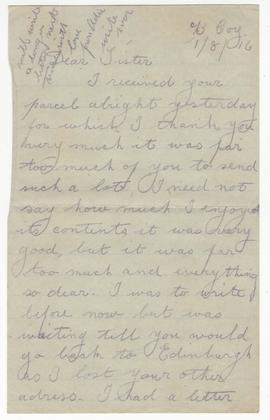 B Coy.
1/8/16
will write
a long
letter next
time with
love
write
Dear Sister
I received your
parcel alright yesterday
for which I thank you
very much it was far
too much of you to send
such a lot. I need not
say how much I enjoyed
its contents it was very
good, but it was far
too much and everything
so dear. I was to write
before now but was
waiting till you would
go back to Edinburgh
as I lost your other
adress. I had a letter